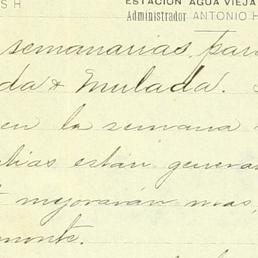 S H
ESTACIÓN AGUA VIEJA
Administrador ANTONIO H
semanarias par
da & Mulada.
en la semana
están genera
mejorarán mas,
monte.